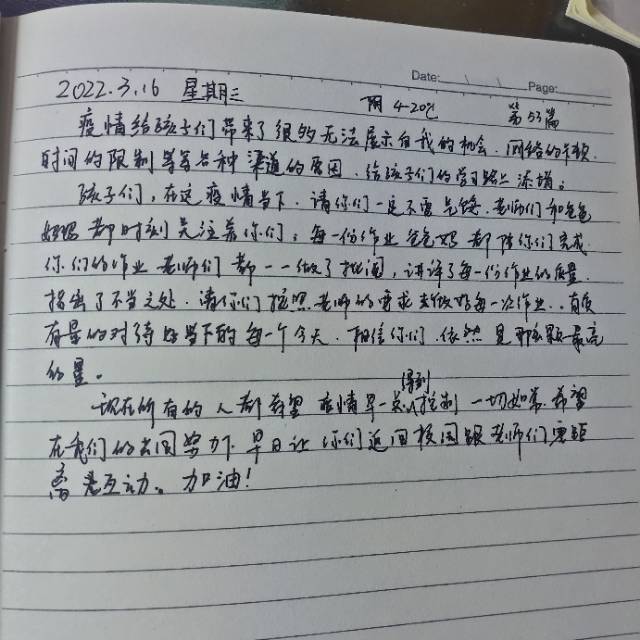 Date: Page:
2022.3.16 星期三 阴 4-20℃ 第53篇
疫情给孩子们带来了很多无法展示自我的机会.网络的卡顿.
时间的限制等等各种渠道的原因.给孩子们的学习路上添堵。
孩子们,在这疫情当下.请你们一定不要气馁.老师们和爸爸
妈妈都时刻关注着你们,每一份作业爸爸妈都陪你们完成.
你们的作业老师们都一一做了批阅,讲评了每一份作业的质量.
指出了不当之处.请你们按照老师的要求去做好每一次作业.
有量的对待好当下的每一个今天.相信你们.依然是那最高
的星。
现在所有的人都希望疫情早一点得到控制一切如常.希望
在我们的共同努力下早日让你们返回校园跟老师们零距
离互动。加油!